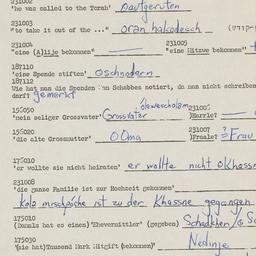 231002
'he was called to the Torah'
231003
"to take it out of the ..." oran hakodesch
231004 231005
"eine (A)lije bekommen" "eine Mitzve bekommen"
187110
'eine Spende stiften' oschnodern
187112
Wie hat man die Spenden am Schabbes notiert, da man nicht schreiben
darf? gemerkt
156050 olewescholem 231006
'mein seliger Grossvater' Grossvater )Herrle(
156020 231007
'die alte Grossmutter' OOma )Fraale( = Frau
176010
'er wollte sie nicht heiraten' er wollte nicht
231008
'die ganze Familie ist zur Hochzeit gekommen'
kole mischpoche ist zu der Khassne gegangen
175010
(Damals hat so einen)'Ehevermittler' (gegeben) Schadchen
175030
(sie hat)Tausend Mark Mitgift (bekommen) Nedinje